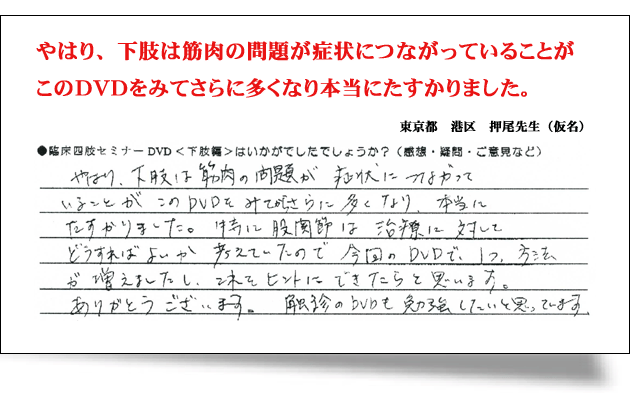 やはり、下肢は筋肉の問題が症状につながっていることが
このDVDをみてさらに多くなり本当にたすかりました。
東京都　港区　押尾先生（仮名）
●臨床四肢セミナーDVD＜下肢編＞はいかがでしたでしょうか？（感想・疑問・ご意見など）
やはり、下肢は筋肉の問題が症状につながって
いることがこのDVDをみてさらに多くなり、本当に
たすかりました。特に股関節は治療に対して
どうすればよいか考えていたので今回のDVDで、1つ、方法
が増えましたし、これをヒントにできたらと思います。
ありがとうございます。触診のDVDも勉強したいと思っています